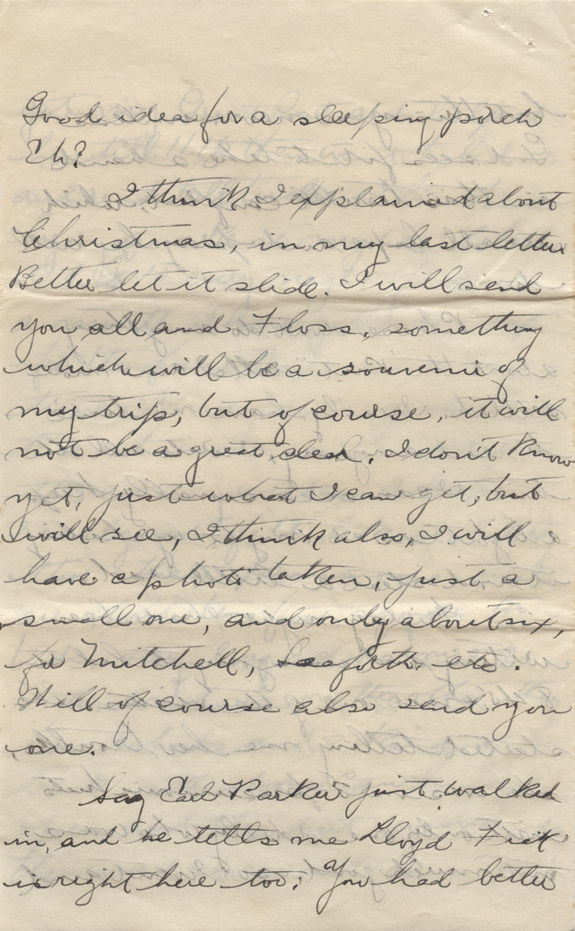 Good idea for a sleeping porch
Eh?
I think I explained about
Christmas, in my last letter
Better let it slide. I will send
you all and Floss, something
which will be a souvenir of
my trip, but of course, it will
not be a great deal, I don't know
yet, just what I can get, but
will see, I think also, I will
have a photo taken, just a
small one, and only about six,
for Mitchell, Seaforth etc.
Will of course also send you
one.
Say Earl Parker just walked
in, and he tells me Lloyd
is right here too; You had better